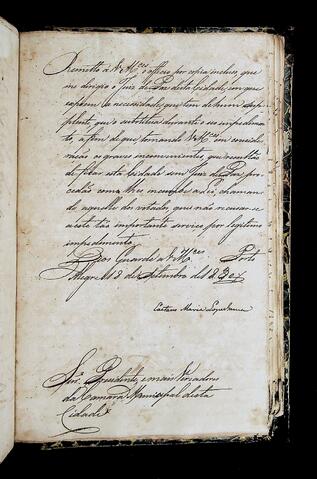 Remetto a V Mces o officio por copia incluso, que
me dirigio o Juiz de Paz desta Cidade, em que
expoem a necessidade, que tem de hum Sup
plente, que o substitua durante o seu impedimen
to, a fim de que, tomando V Mces em conside
ração os graves inconvenientes, que resultão
de ficar esta Cidade sem Juiz de Paz, pro
cedão como lhes incumbe a Lei, chaman
do aquelle dos votados, que não recusar-se
a este tão importante serviço por legitimo
impedimento.
Deos Guarde a V Mces Porto
Alegre 18 de Setembro de 1830
Caetano Maria Lopes Gama
Snrs. Presidente, e mais Vereadores
da Camara Municipal desta
Cidade